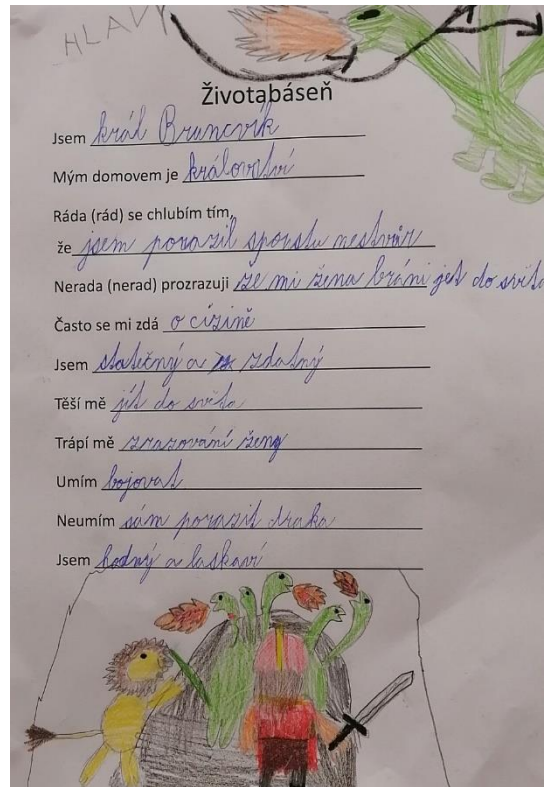 HLAVY
Životabáseň
Jsem král Bruncvík
Mým domovem je království
Ráda (rád) se chlubím tím,
že jsem porazil spoustu nestvůr
Nerada (nerad) prozrazuji že mi žena brání jet do světa
Často se mi zdá o cizině
Jsem statečný a zdatný
Těší mě jít do světa
Trápí mě zrazování ženy
Umím bojovat
Neumím sám porazit draka
Jsem hodný a laskaví